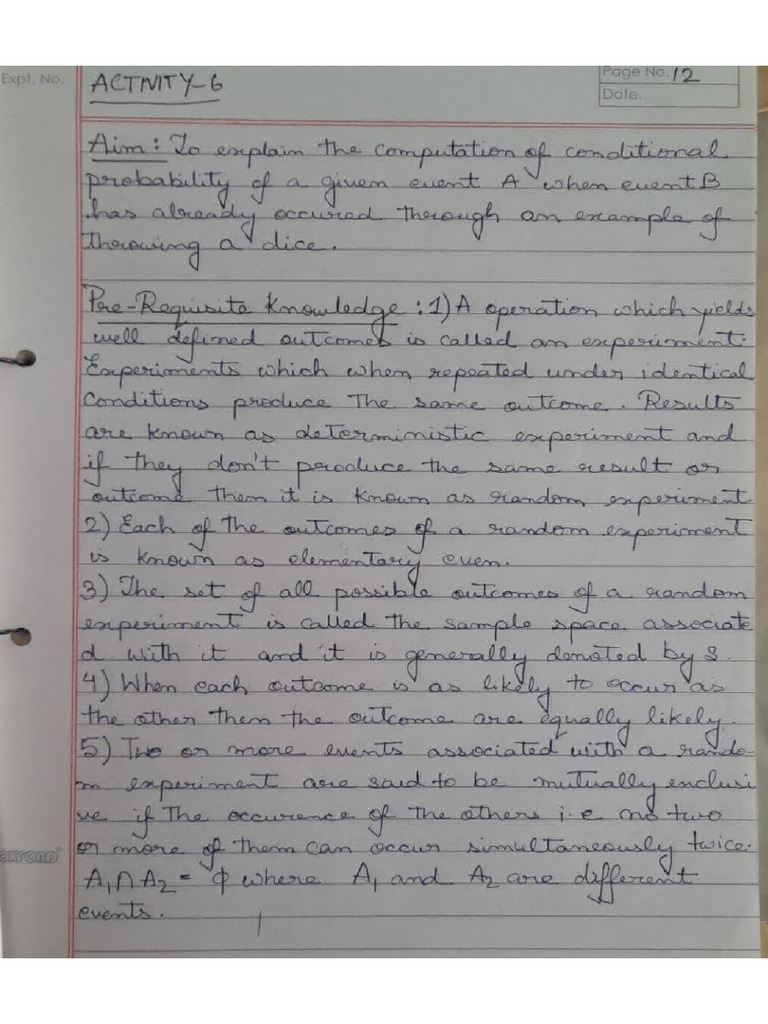 Expt. No.
ACTIVITY-6
Page No. 12
Date.
Aim: To explain the computation of conditional
probability of a given event A when event B
has already occured through an example of
throwing a dice.
Pre-Requisite Knowledge: 1) A operation which yields
well defined outcomes is called an experiment.
Experiments which when repeated under identical
conditions produce the same outcome. Results
are known as deterministic experiment and
if they don't produce the same result or
outcome then it is known as random experiment.
2) Each of the outcomes of a random experiment
is known as elementary even.
3) The set of all possible outcomes of a random
experiment is called the sample space associate
d with it and it is generally donated by S.
4) When each outcome is as likely to occur as
the other then the outcome are equally likely.
5) Two or more events associated with a rando-
m experiment are said to be mutually exclusi
ve if the occurence of the others i.e no two
or more of them can occur simultaneously twice.
A₁∩A₂ = ϕ where A₁ and A₂ are different
events.